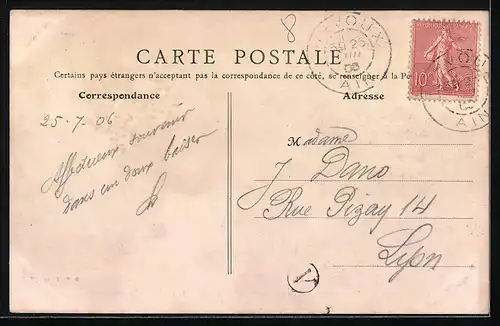 8
CARTE POSTALE
Certains pays étrangers n'acceptant pas la correspondance de ce côté, se renseigner à la Po
Correspondance
Adresse
25-7 06
Affectueux souvenir
dans un doux baiser
Madame
J Dano
Rue Pizay 14
Lyon
VOUX
25
AIN
10
AIN